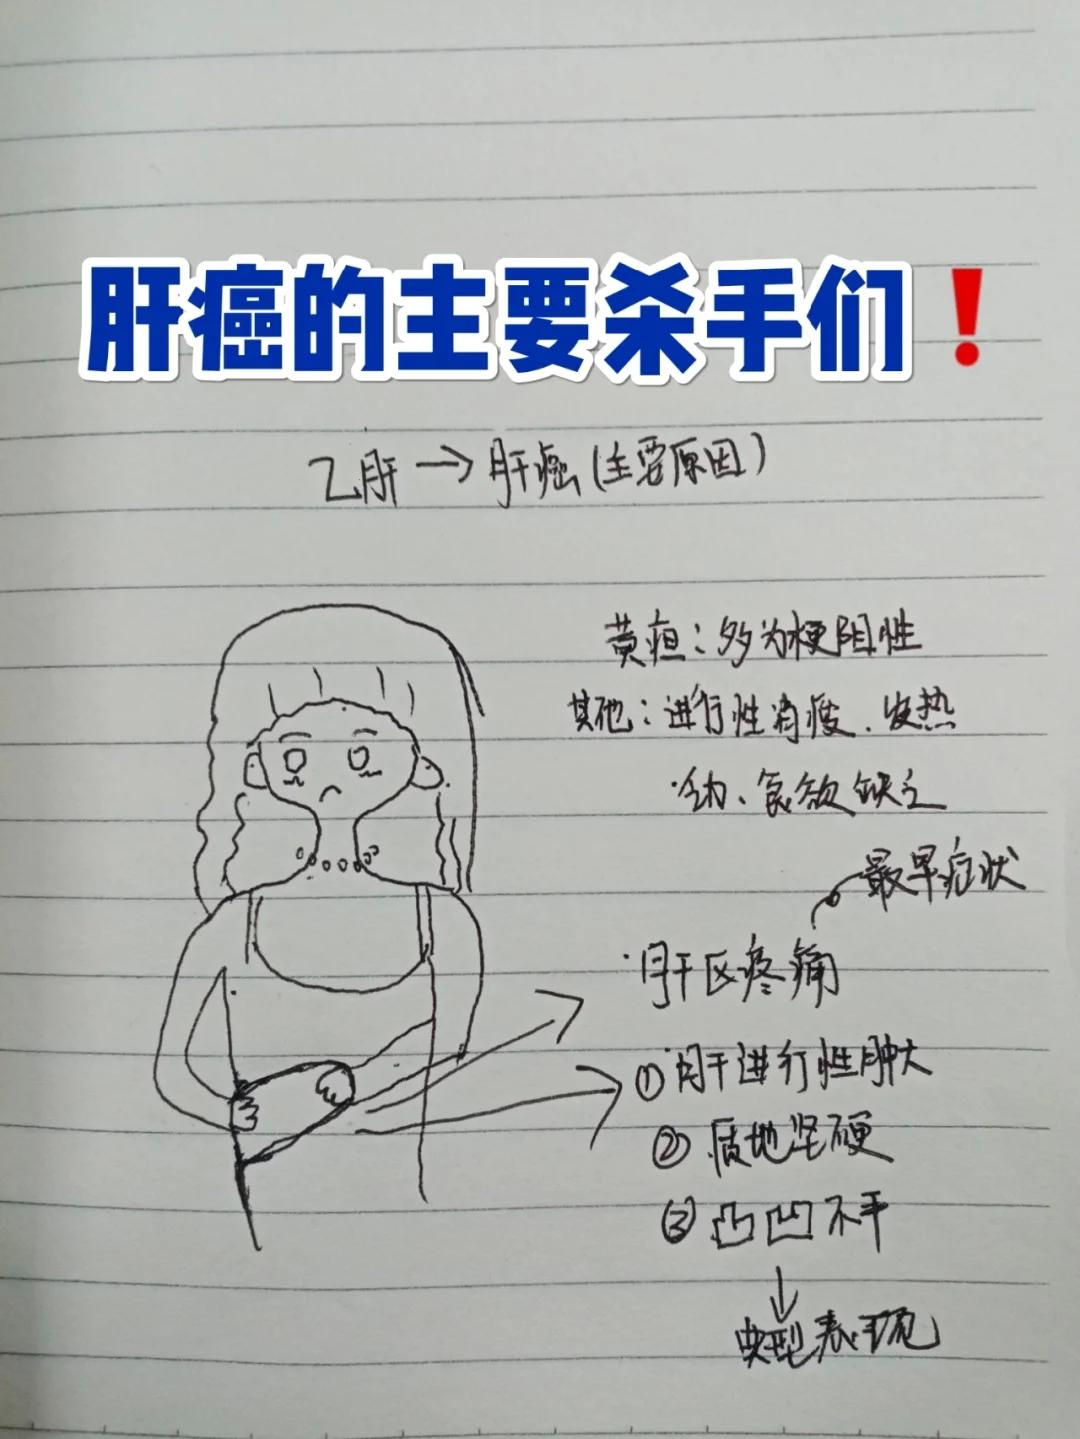 肝癌的主要杀手们❗
乙肝→肝癌(主要原因)
黄疸：多为梗阻性
其他：进行性消瘦、发热
食欲缺乏
最早症状
肝区疼痛
①肝进行性肿大
②质地坚硬
③凸凹不平
↓
典型表现